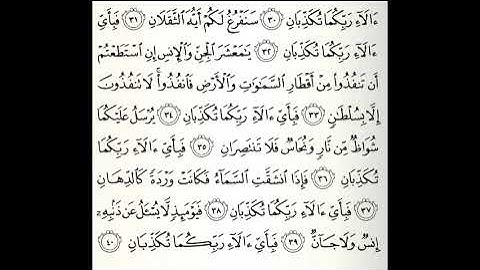 ءَالَآءِ رَبِّكُمَا تُكَذِّبَانِ ٣٠ سَنَفْرُغُ لَكُمْ أَيُّهَ ٱلثَّقَلَانِ ٣١ فَبِأَيِّ
ءَالَآءِ رَبِّكُمَا تُكَذِّبَانِ ٣٢ يَٰمَعْشَرَ ٱلْجِنِّ وَٱلْإِنسِ إِنِ ٱسْتَطَعْتُمْ
أَن تَنفُذُوا۟ مِنْ أَقْطَارِ ٱلسَّمَٰوَٰتِ وَٱلْأَرْضِ فَٱنفُذُوا۟ ۚ لَا تَنفُذُونَ
إِلَّا بِسُلْطَٰنٍ ٣٣ فَبِأَيِّ ءَالَآءِ رَبِّكُمَا تُكَذِّبَانِ ٣٤ يُرْسَلُ عَلَيْكُمَا
شُوَاظٌ مِّن نَّارٍ وَنُحَاسٌ فَلَا تَنتَصِرَانِ ٣٥ فَبِأَيِّ ءَالَآءِ رَبِّكُمَا
تُكَذِّبَانِ ٣٦ فَإِذَا ٱنشَقَّتِ ٱلسَّمَآءُ فَكَانَتْ وَرْدَةً كَٱلدِّهَانِ
٣٧ فَبِأَيِّ ءَالَآءِ رَبِّكُمَا تُكَذِّبَانِ ٣٨ فَيَوْمَئِذٍ لَّا يُسْـَٔلُ عَن ذَنۢبِهِۦٓ
إِنسٌ وَلَا جَآنٌّ ٣٩ فَبِأَيِّ ءَالَآءِ رَبِّكُمَا تُكَذِّبَانِ ٤٠